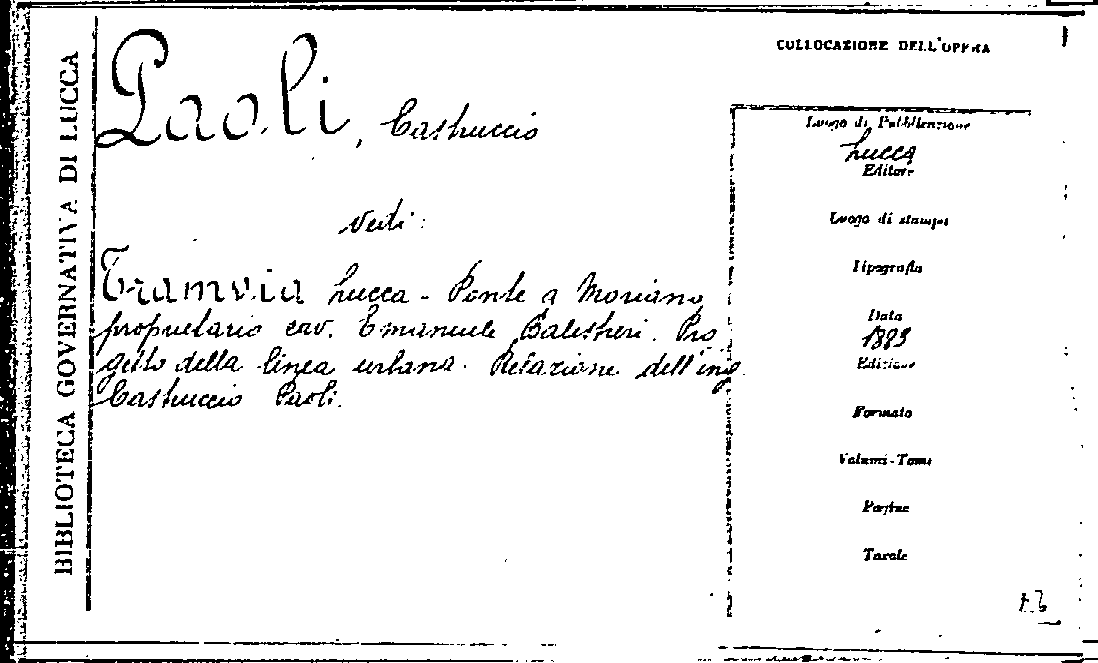 BIBLIOTECA GOVERNATIVA DI LUCCA
COLLOCAZIONE DELL'OPERA
Paoli, Castruccio
Vedi:
Tramvia Lucca - Ponte a Moriano
proprietario cav. Emanuele Balestreri. Pro
getto della linea urbana. Relazione dell'ing.
Castruccio Paoli.
Luogo di Pubblicazione
Lucca
Editore
Luogo di stampa
Tipografia
Data
1883
Edizione
Formato
Volumi-Tomi
Pagine
Tavole